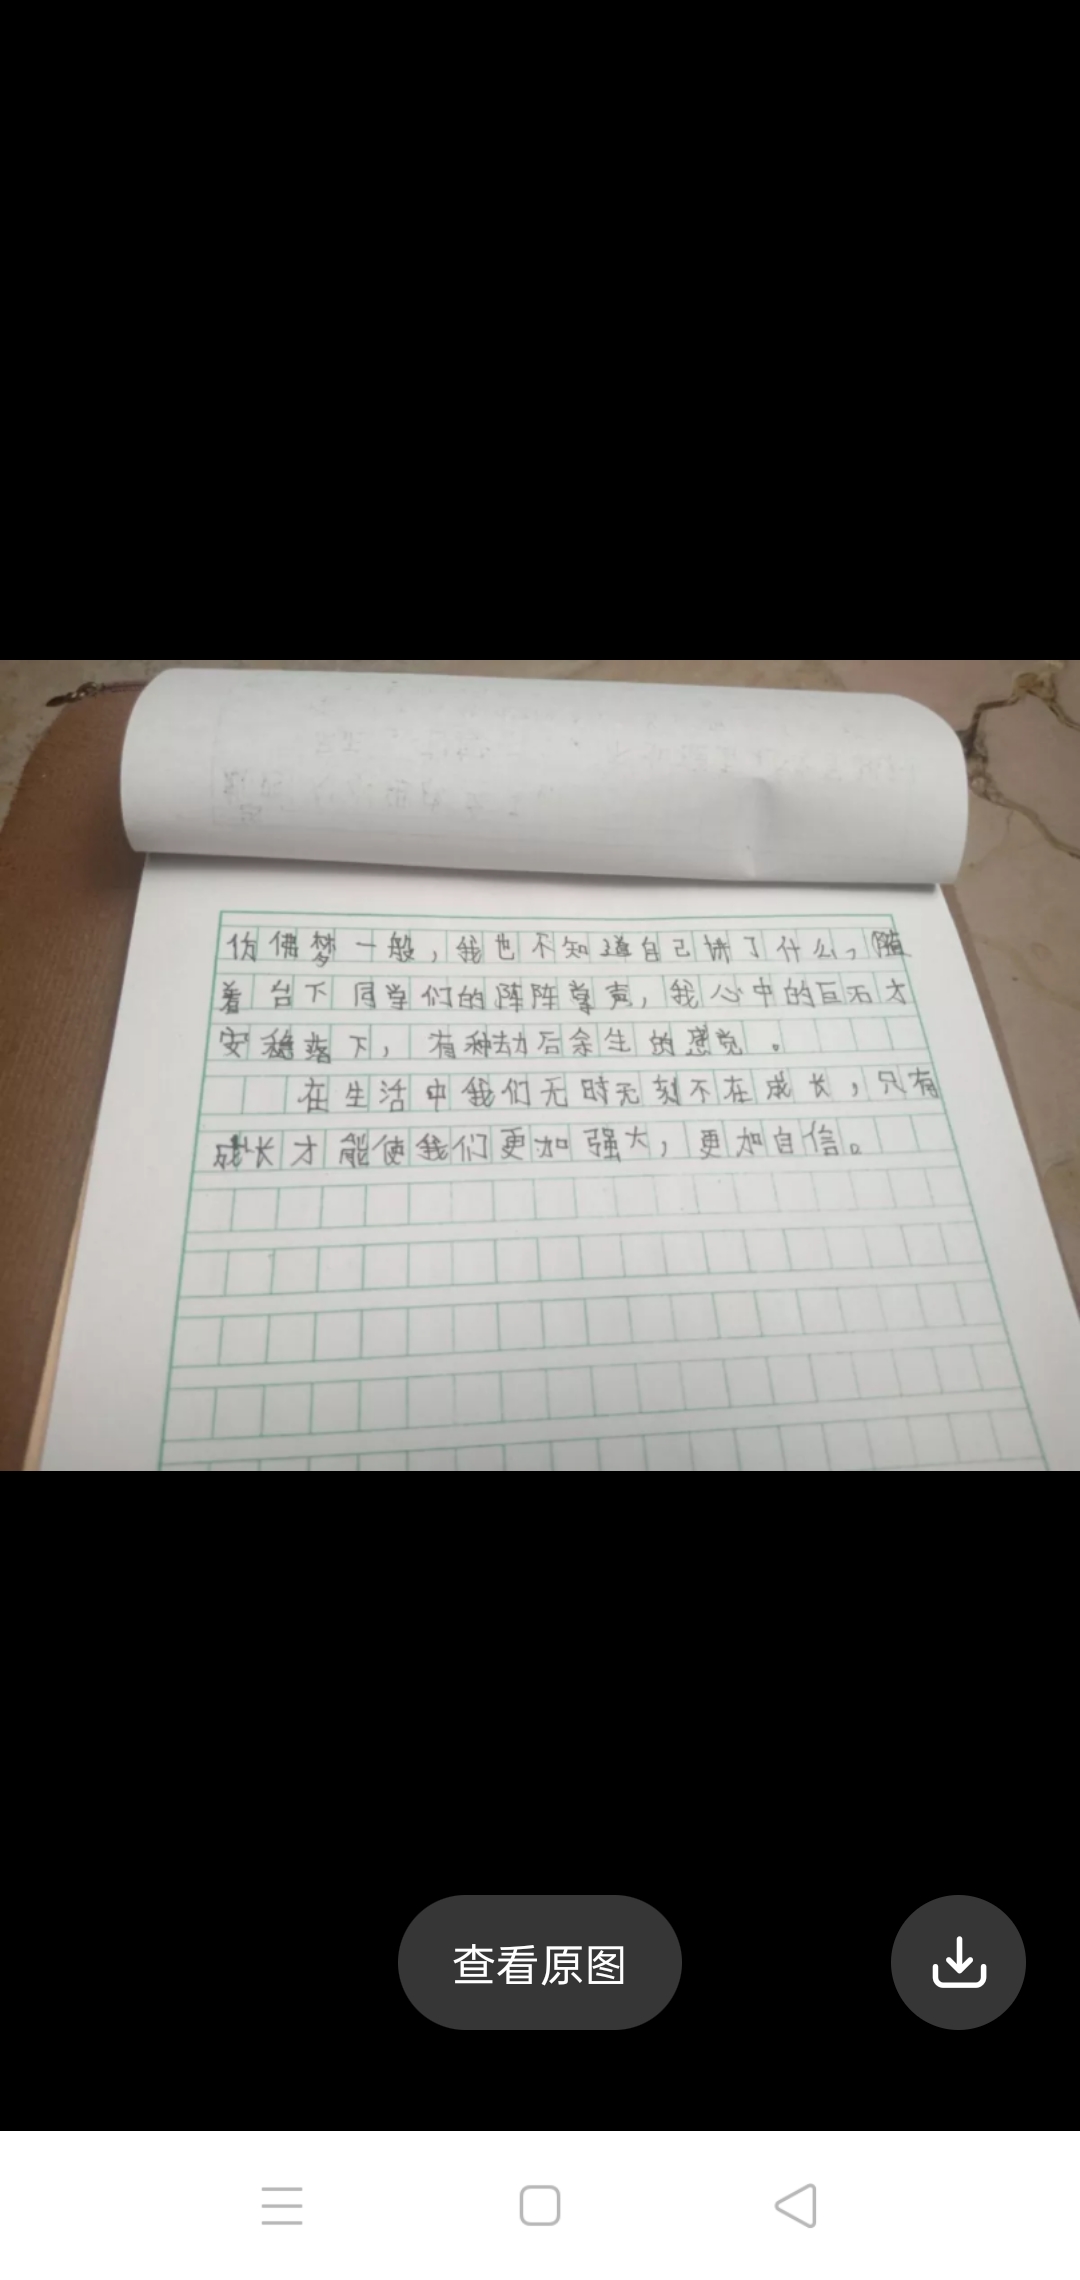 仿佛梦一般，我也不知道自己讲了什么，随
着台下同学们的阵阵掌声，我心中的巨石才
安稳落下，有种劫后余生的感觉。
在生活中我们无时无刻不在成长，只有
成长才能使我们更加强大，更加自信。
查看原图